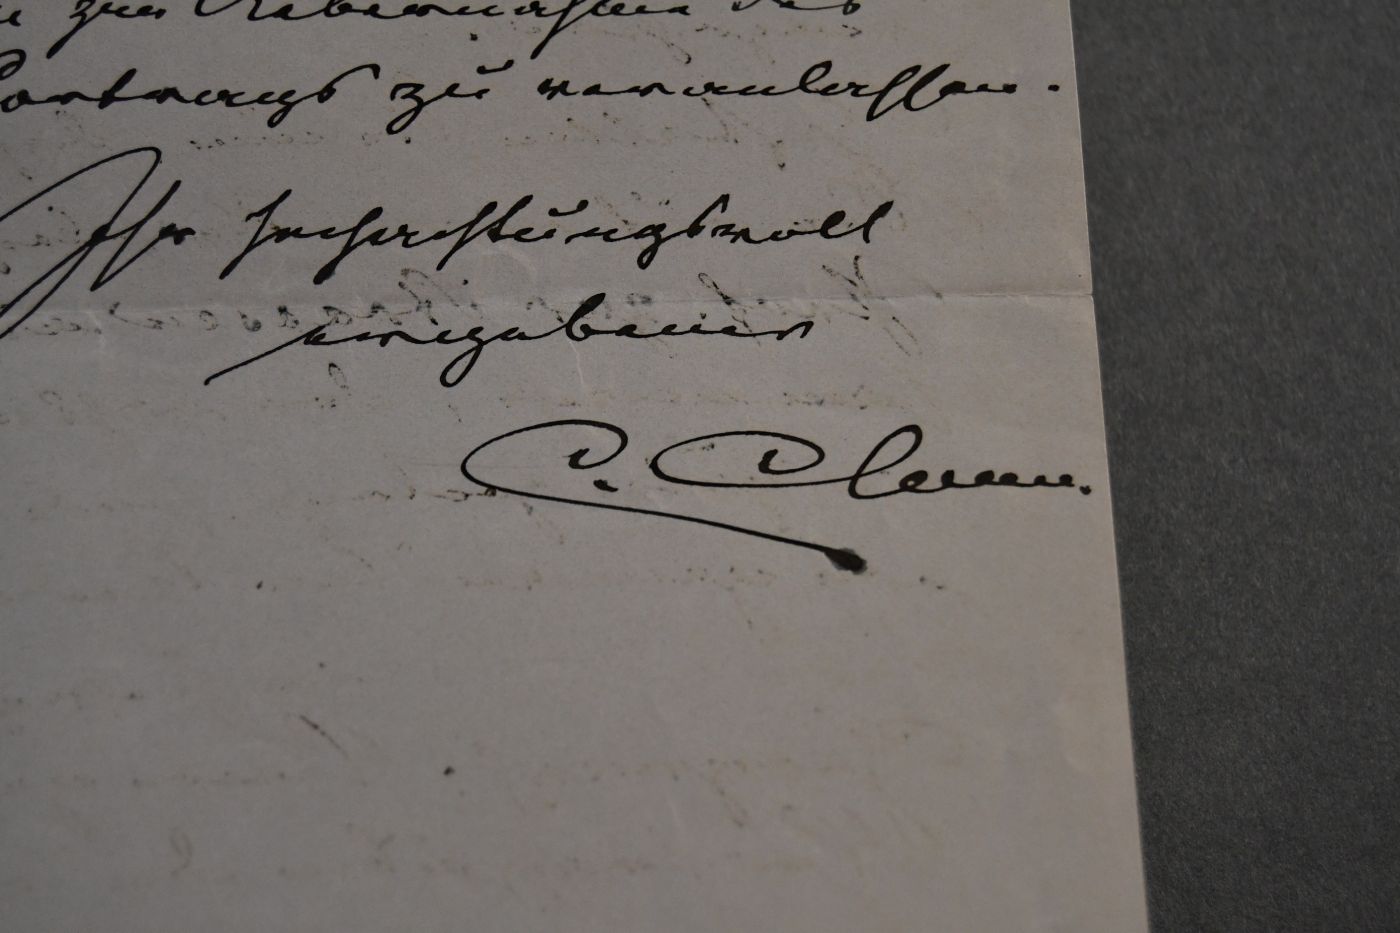 zur Uebernahme des
Vortrags zu veranlassen.
Ihr hochachtungsvoll
ergebener
C. Chun.